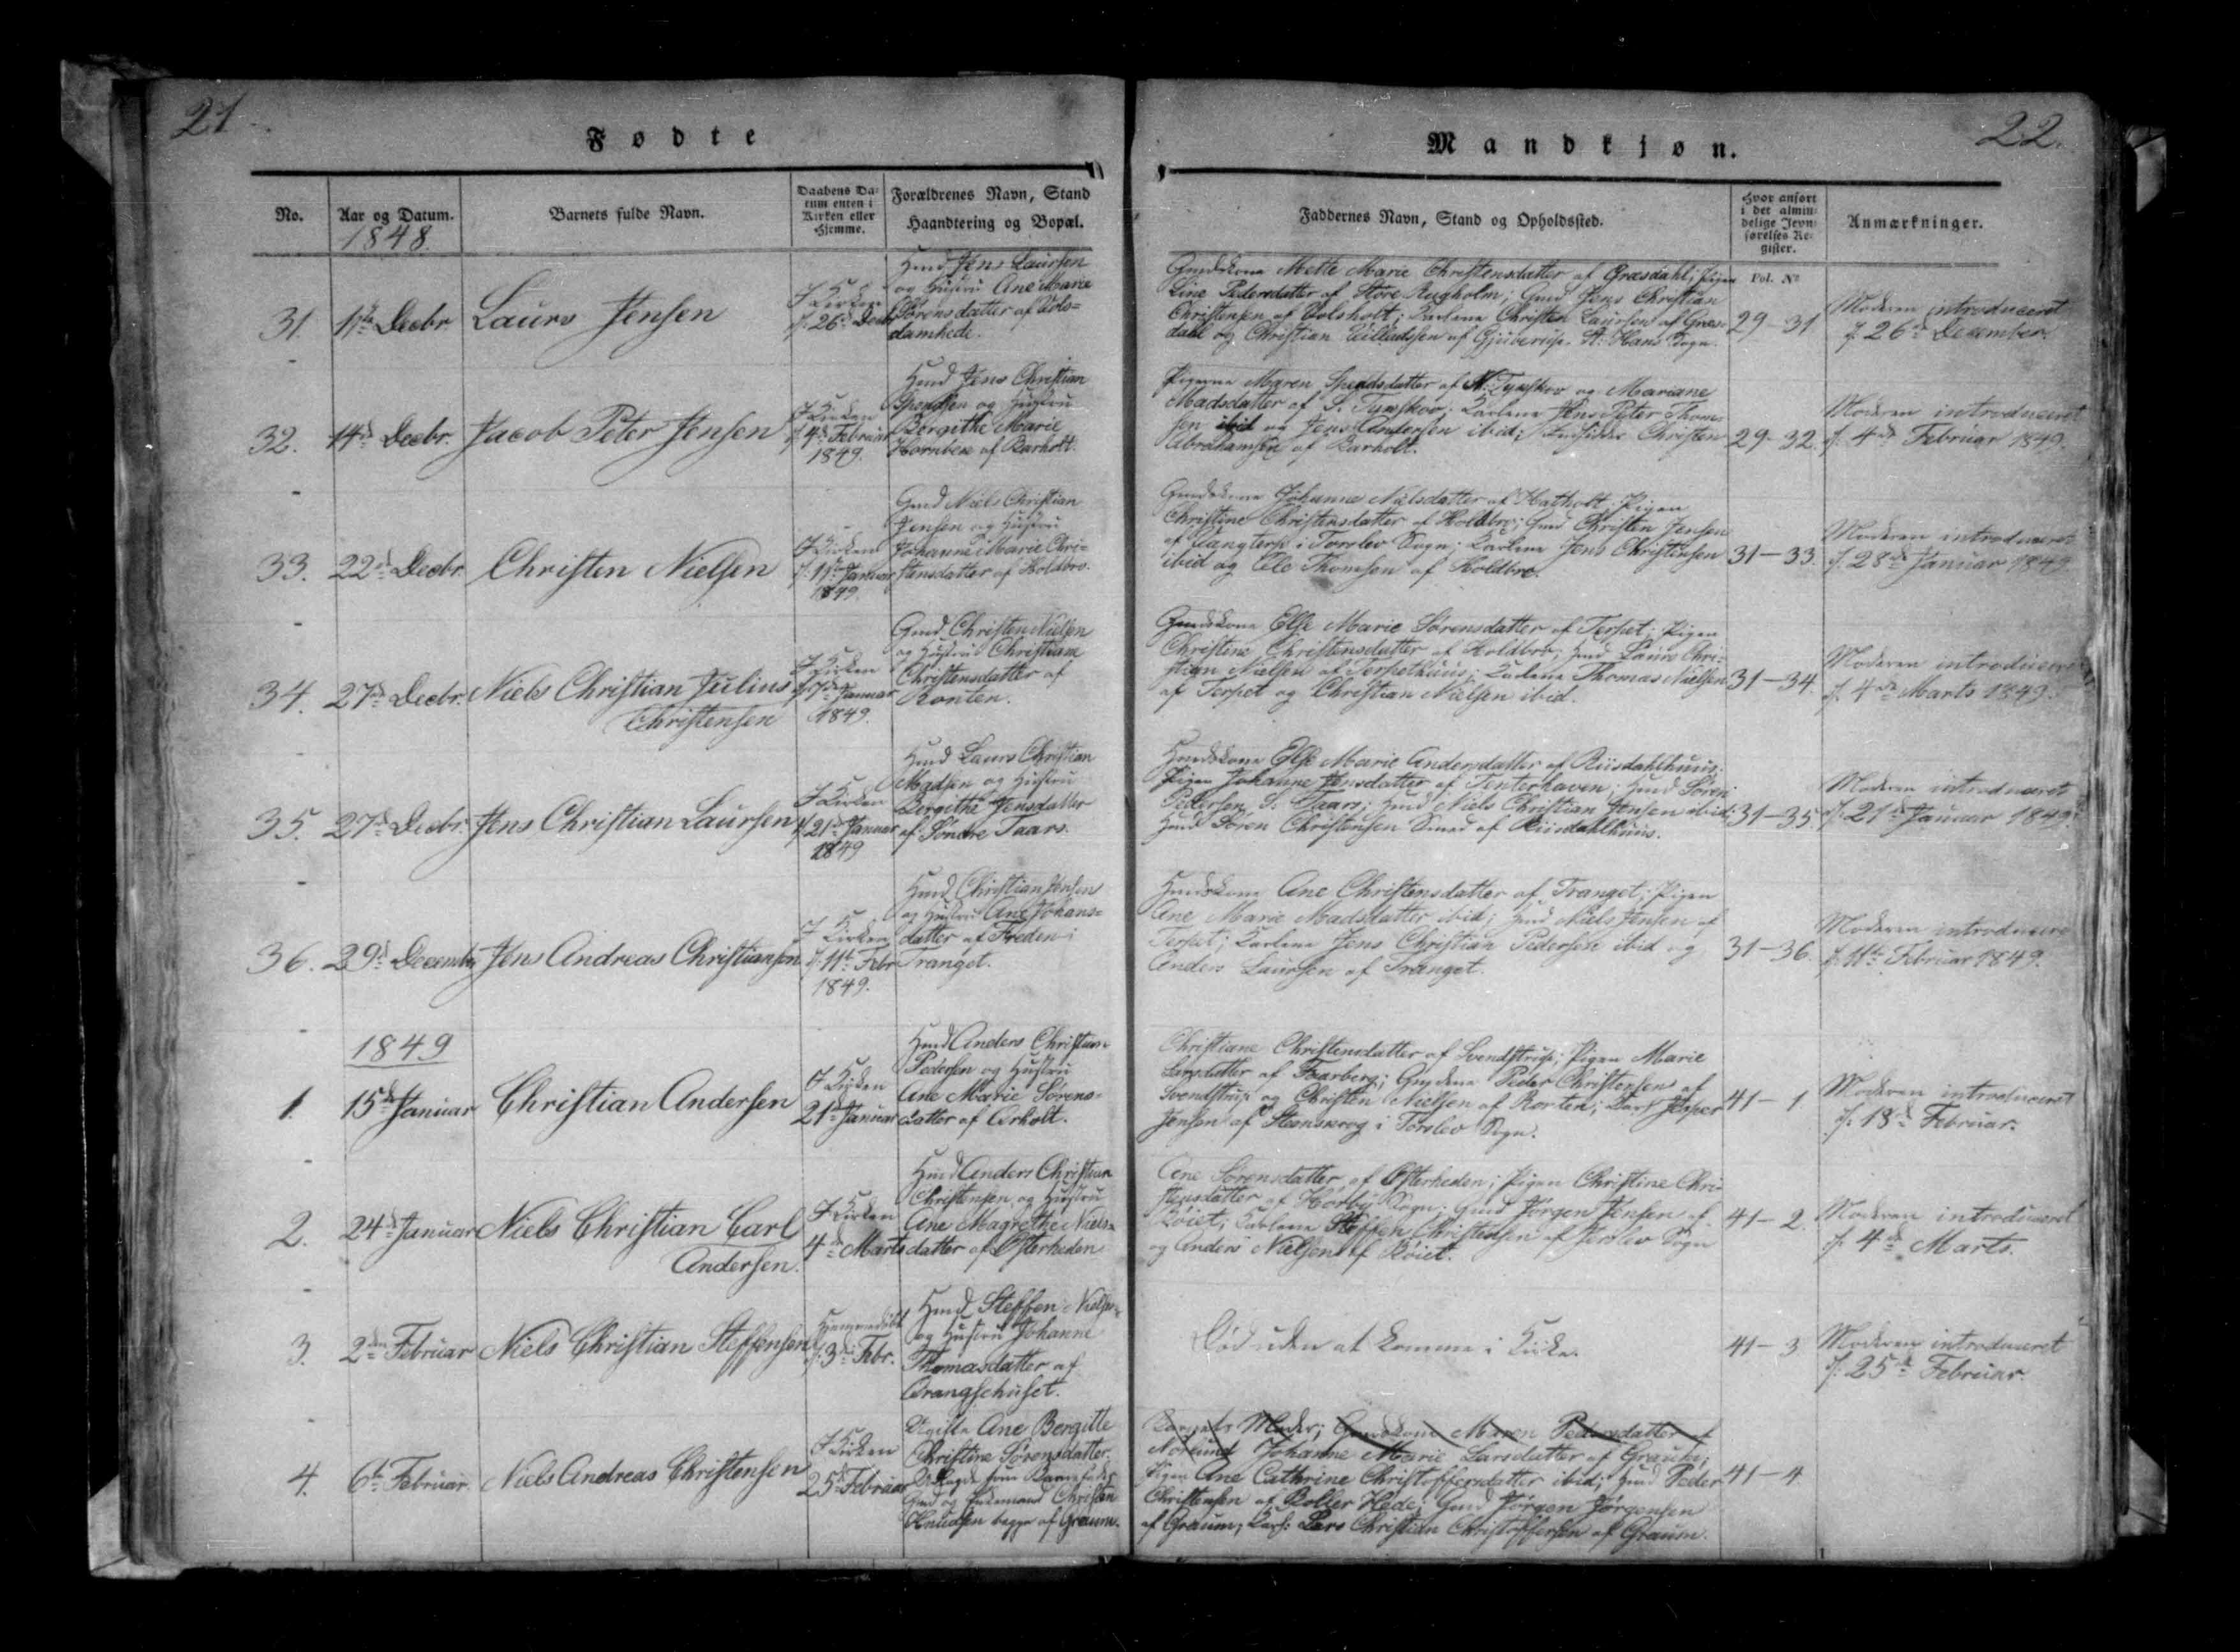 21
Fødte
No.
Aar og Datum.
1848.
Barnets fulde Navn.
Daabens Da-
tum enten i
Kirken eller
Hjemme.
Forældrenes Navn, Stand
Haandtering og Bopæl.
31.
11te Decbr
Laurs Jensen
I Kirken
d: 26d Decbr
Huusmd Jens Laursen
og Hustru Ane Marie
Sørensdatter af
damhede.
32.
14d Decbr.
Jacob Peter Jensen
I Kirken
d. 4de Februar
1849.
Huusmd Jens Christian
Spendsen og Hustru
Birgithe Marie
af Barholt.
33.
22d Decbr
Christen Nielsen
I Kirken
d: 11te Januar
1849.
Gmd Niels Christian
Jensen og Hustru
Johanne Marie Chri-
stensdatter af Holdbro.
34.
27d Decbr.
Niels Christian Julius
Christensen
I Kirken
Januar
1849.
Gmd Christen Nielsen
og Hustru Christiane
Christensdatter af
Ronten.
35.
27d Decbr.
Jens Christian Laursen
I Kirken
21d Januar
1849
Huusmd Laurs Christian
Madsen og Hustru
Birgithe Jensdatter
af Søndre Taars.
36.
29d Decembr
Jens Andreas Christiansen
I Kirken
d: 11te Febr
1849.
Huusmd Christian Jensen
og Hustru Ane Johans-
datter af Freden i
Tranget.
1849
1.
15d Januar
Christian Andersen
I Kirken
21d Januar
Huusmd Anders Christian
Pedersen og Hustru
Ane Marie Sørens-
datter af Arholt.
2.
24d Januar
Niels Christian Carl
Andersen.
I Kirken
4de Marts
Huusmd Anders Christian
Christensen og Hustru
Ane Magrethe Niels-
datter af Østerheden
3.
2den Februar
Niels Christian Steffensen
Hjemmedøbt
d: 3die Febr.
Huusmd Steffen Nielsen
og Hustru Johanne
Thomasdatter af
4.
6te Februar
Niels Andreas Christensen
I Kirken
25d Februar
Ugifte Ane Bergitte
Christine Sørensdatter.
Udlagt som Barnefader
Gmd og Enkemand Christen
Knudsen begge af Graum.
Mandkjøn.
22.
Faddernes Navn, Stand og Opholdssted.
Hvor anført
i det almin-
delige Jevn-
førelses Re-
gister.
Anmærkninger.
Fol. No
Gmdskone Mette Marie Christensdatter af Græsdahl; Pigen
Line Pedersdatter af Store Rugholm; Gmd Jens Christian
Christensen af Volsholt; Karlene Christen Laursen af Græs-
dahl og Christian af St: Hans Sogn.
29-31
Moderen introduceret
d. 26d December.
Pigerne Maren Spendsdatter af N. Tynskov og Mariane
Madsdatter af S. Tynskov; Karlene Jens Peter Thom-
sen ibid og Jens Andersen ibid; Christen
Abrahamsen af Barholt.
29-32.
Moderen introduceret
d. 4de Februar 1849.
Gmdskone Johanne Nielsdatter af Hatholt; Pigen
Christine Christensdatter af Holdbro; Gmd Christen Jensen
af i Torslev Sogn; Karlene Jens Christensen
ibid og Ole Thomsen af Holdbro.
31-33.
Moderen introduceret
d. 28d Januar 1849
Gmdskone Else Marie Sørensdatter af Terpet; Pigen
Christine Christensdatter af Holdbro; Huusmd Laurs Chri-
stian Nielsen af Terpethuus; Karlene Thomas Nielsen
af Terpet og Christian Nielsen ibid.
31-34.
Moderen introduceret
d. 4de Marts 1849.
Huusmdskone Else Marie Andersdatter af Riisdahlhuus;
Pigen Johanne Jensdatter af Tenterhaven; Huusmd Søren
Pedersen S: Taars; Huusmd Niels Christian Jensen ibid;
Huusmd Søren Christensen Smed af Riisdahlhuus.
31-35.
Moderen introduceret
d: 21d Januar 1849.
Huusmdskone Ane Christensdatter af Tranget; Pigen
Ane Marie Madsdatter ibid; Huusmd Niels Jensen af
Terpet; Karlene Jens Christian Pedersen ibid og
Anders Laursen af Tranget.
31-36.
Moderen introduceret
d. 11te Februar 1849.
Christiane Christensdatter af Svendstrup; Pigen Marie
Larsdatter af Faarberg; Gmdene Peder Christensen af
Svendstrup og Christen Nielsen af Ronten; Karl Jesper
Jensen af Steenskrog i Torslev Sogn.
41-1.
Moderen introduceret
d. 18d Februar.
Ane Sørensdatter af Østerheden; Pigen Christine Chri-
stensdatter af Hørby Sogn; Gmd Jørgen Jensen af
Røiet; Karlene Steffen Christensen af Torslev Sogn
og Anders Nielsen af Røiet.
41-2.
Moderen introduceret
d. 4de Marts.
Død uden at komme i Kirke.
41-3
Moderen introduceret
d. 25d Februar.
Barnets Moder; Gmdskone Maren Pedersdatter af
Johanne Marie Larsdatter af Graum;
Pigen Ane Cathrine Christoffersdatter ibid; Huusmd Peder
Christensen af Boller Hede; Gmd Jørgen Jørgensen
af Graum; Karl: Lars Christian Christoffersen af Graum.
41-4